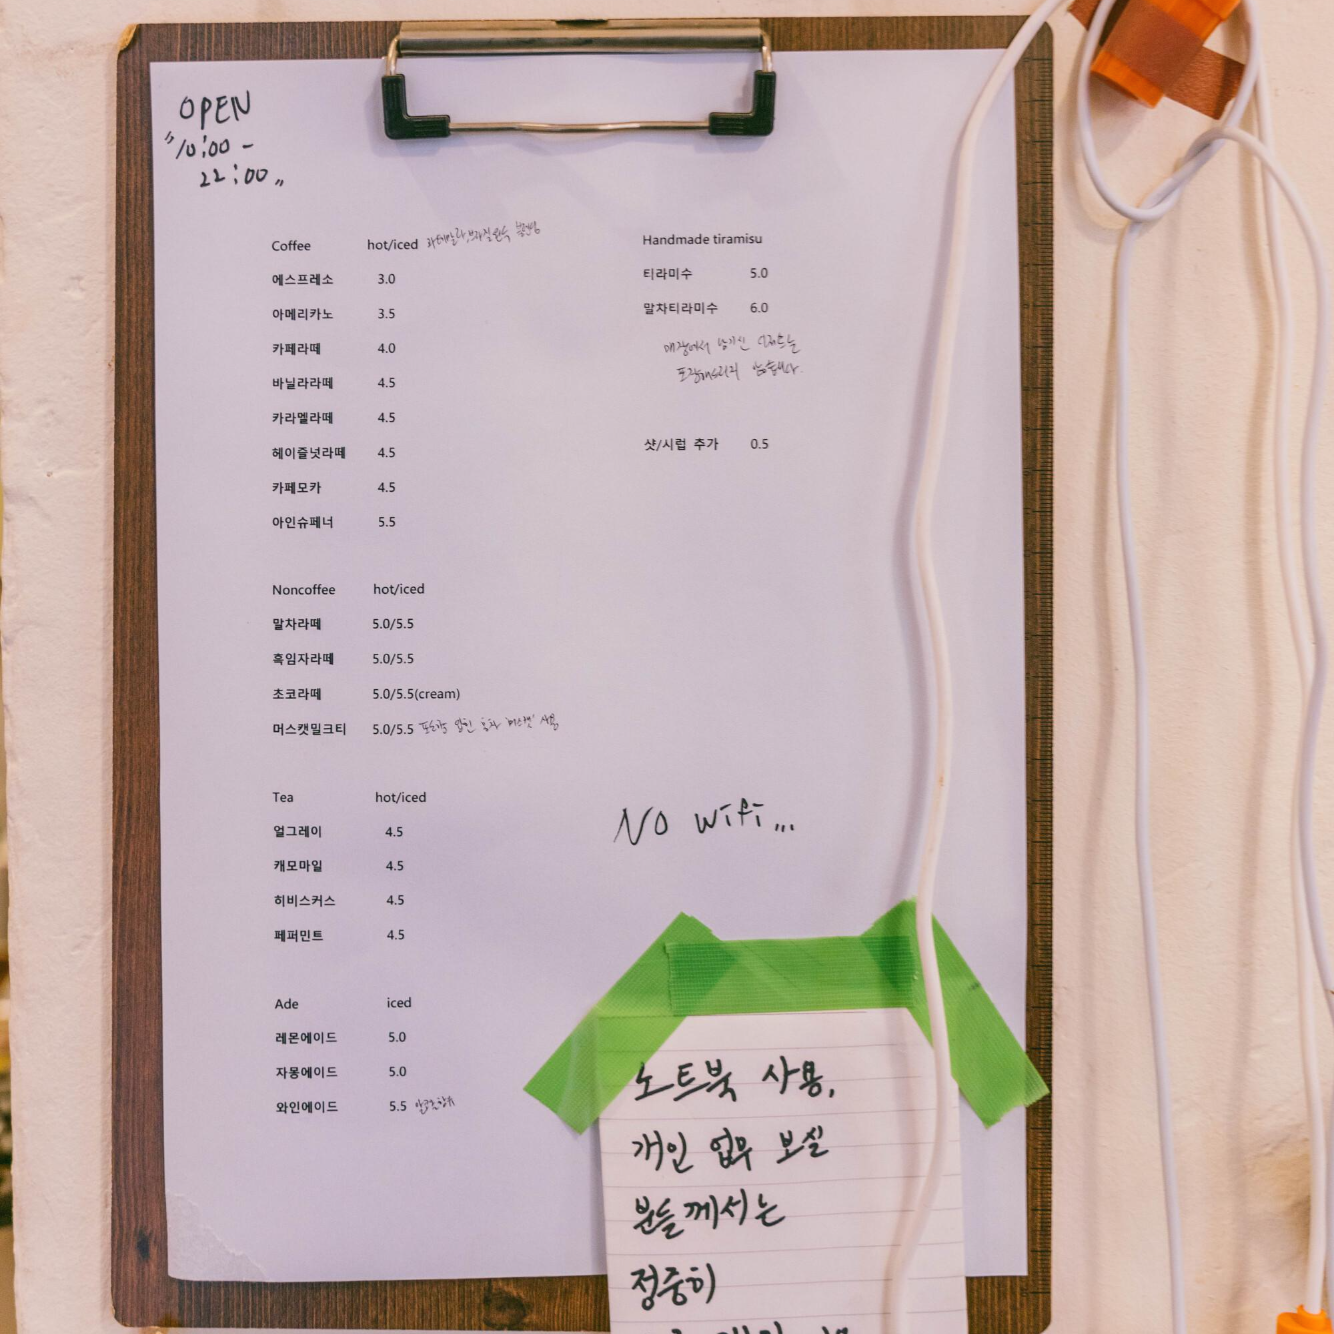 OPEN
"10:00 -
22:00"
Coffee hot/iced 과테말라,브라질 원두 블렌딩
에스프레소 3.0
아메리카노 3.5
카페라떼 4.0
바닐라라떼 4.5
카라멜라떼 4.5
헤이즐넛라떼 4.5
카페모카 4.5
아인슈페너 5.5
Noncoffee hot/iced
말차라떼 5.0/5.5
흑임자라떼 5.0/5.5
초코라떼 5.0/5.5(cream)
머스캣밀크티 5.0/5.5 홍차 '머스캣' 사용
Tea hot/iced
얼그레이 4.5
캐모마일 4.5
히비스커스 4.5
페퍼민트 4.5
Ade iced
레몬에이드 5.0
자몽에이드 5.0
와인에이드 5.5
Handmade tiramisu
티라미수 5.0
말차티라미수 6.0
매장에서 남기신 디저트는
포장해드리지 않습니다.
샷/시럽 추가 0.5
No wifi...
노트북 사용,
개인 업무 보실
분들께서는
정중히